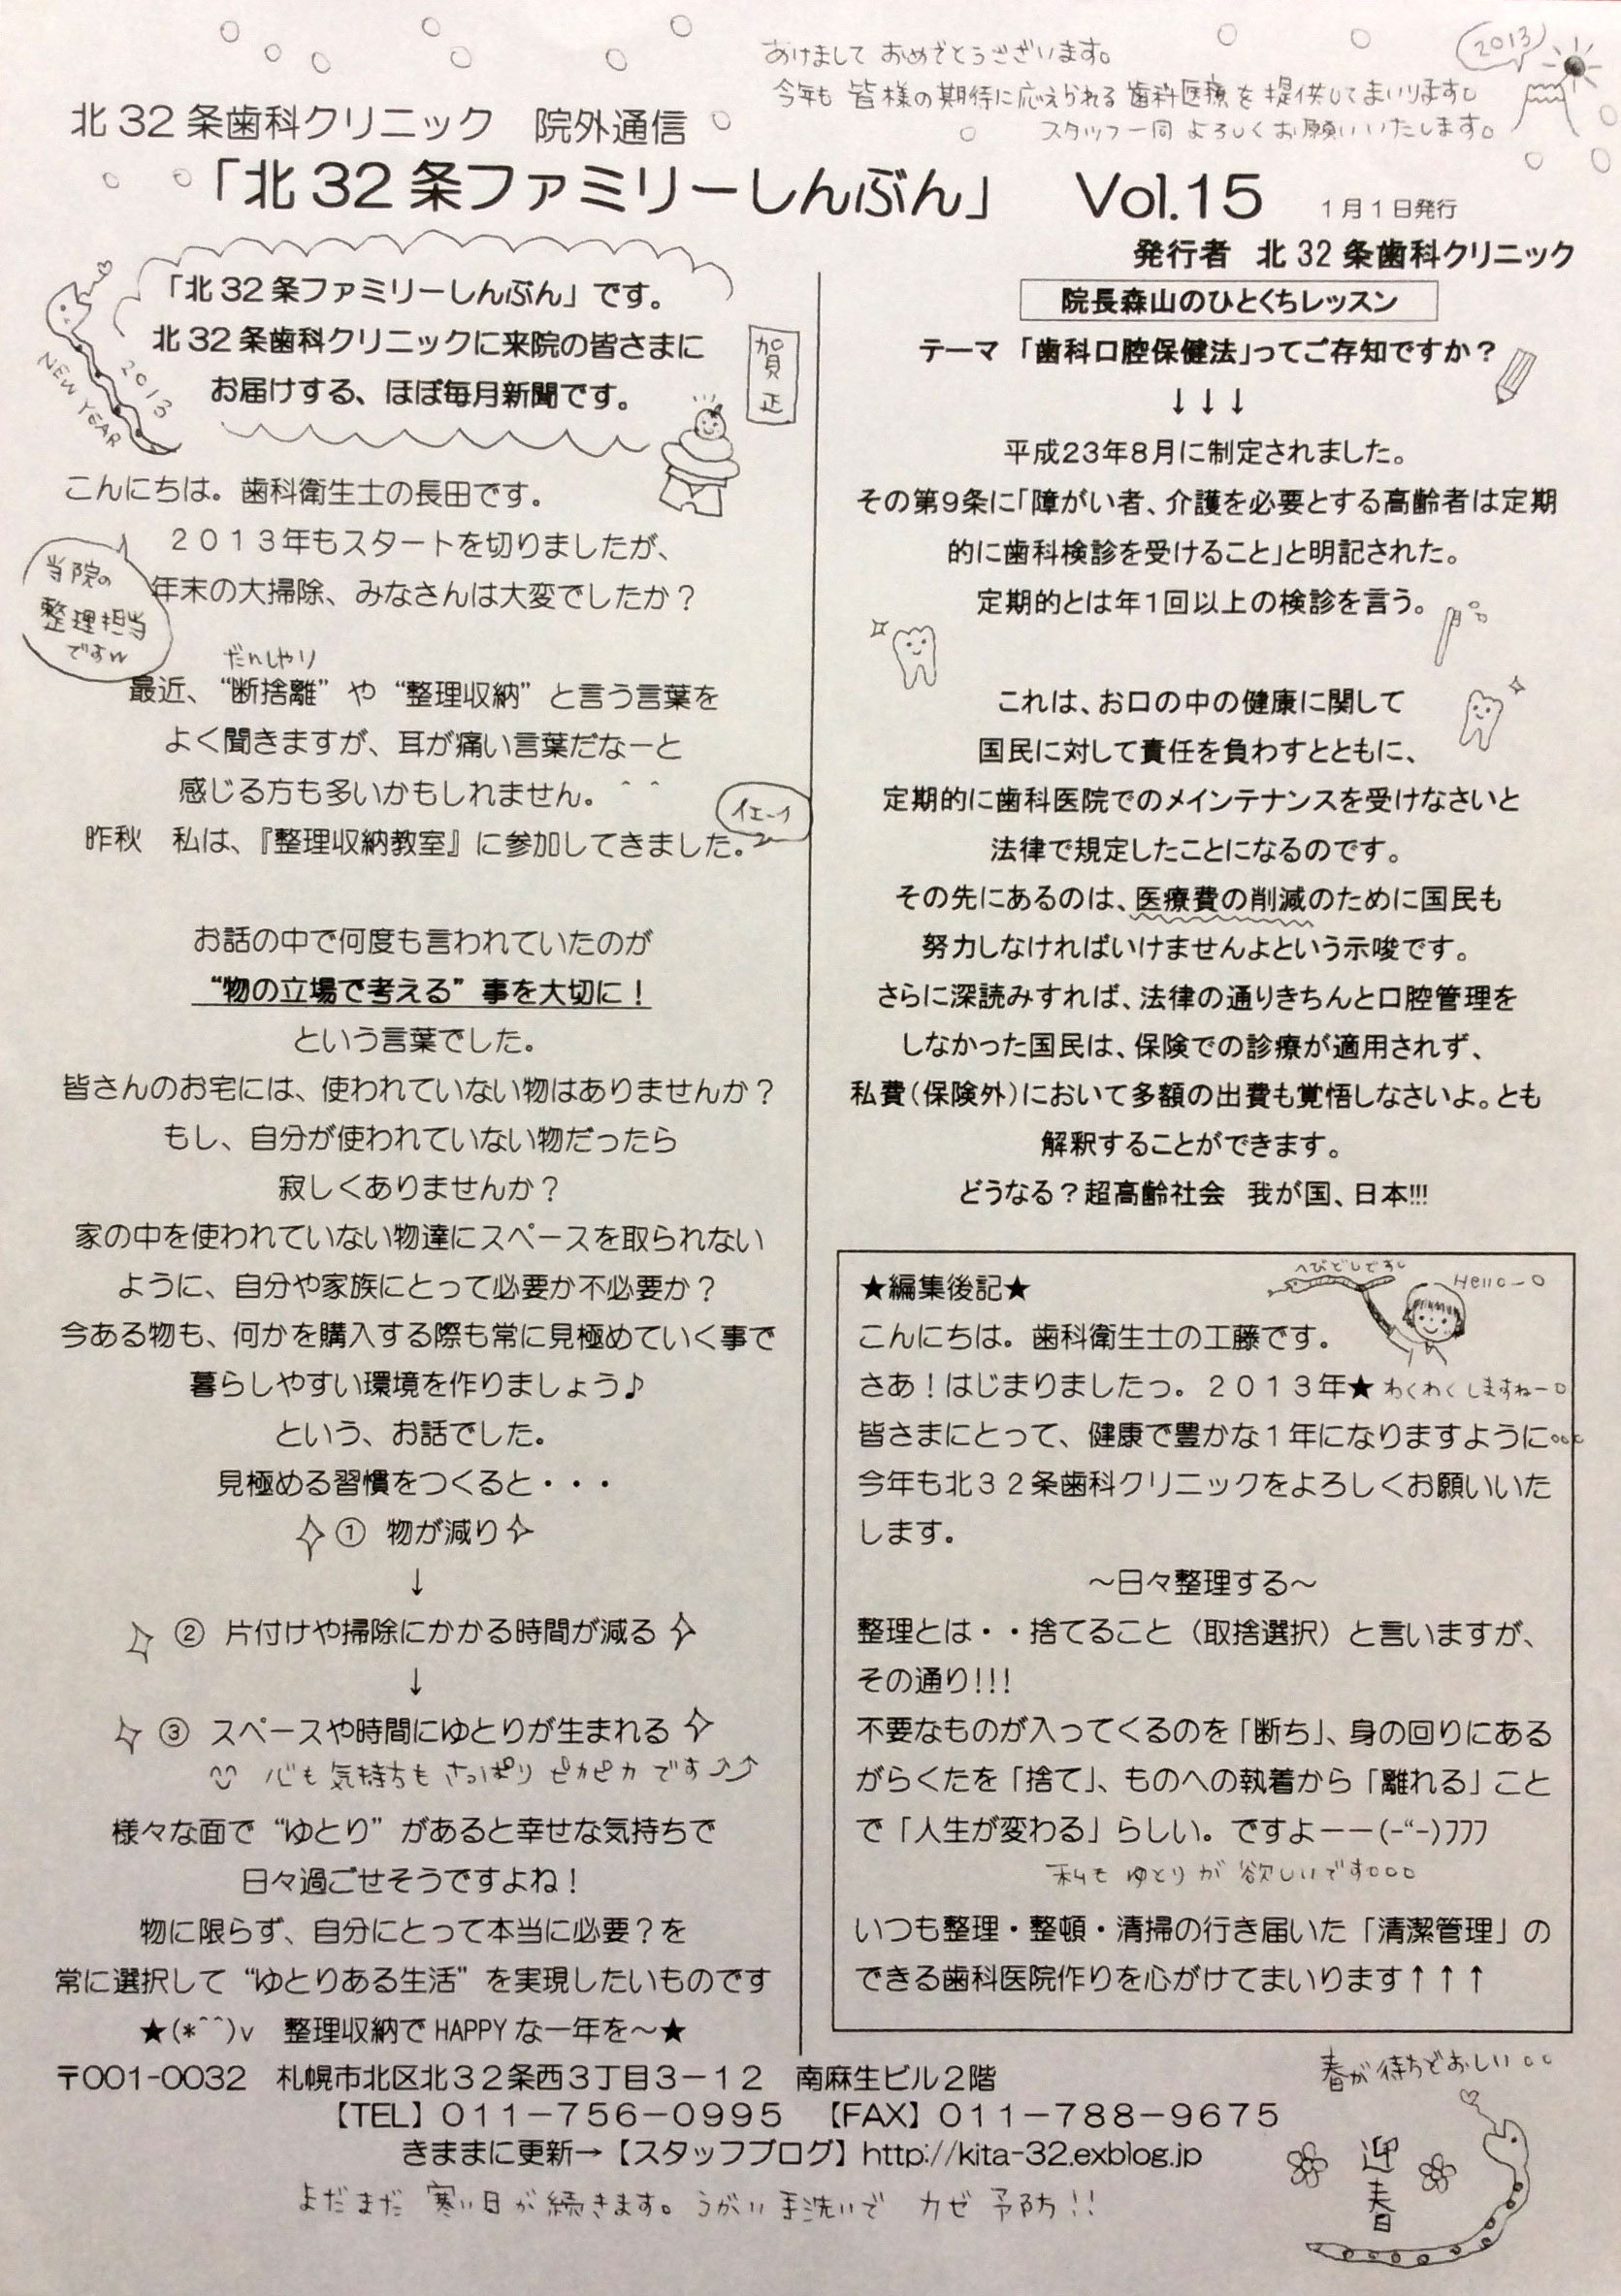 あけまして おめでとうございます。
今年も 皆様の期待に応えられる 歯科医療を 提供してまいります。
スタッフ一同 よろしくお願いいたします。
2013
北32条歯科クリニック 院外通信
「北32条ファミリーしんぶん」 Vol.15 1月1日発行
発行者 北32条歯科クリニック
「北32条ファミリーしんぶん」です。
北32条歯科クリニックに来院の皆さまに
お届けする、ほぼ毎月新聞です。
NEW YEAR 2013
賀正
こんにちは。歯科衛生士の長田です。
2013年もスタートを切りましたが、
年末の大掃除、みなさんは大変でしたか?
当院の
整理担当
ですw
だんしゃり
最近、“断捨離”や“整理収納”と言う言葉を
よく聞きますが、耳が痛い言葉だなーと
感じる方も多いかもしれません。＾＾
昨秋 私は、『整理収納教室』に参加してきました。
イエーイ
お話の中で何度も言われていたのが
“物の立場で考える”事を大切に!
という言葉でした。
皆さんのお宅には、使われていない物はありませんか?
もし、自分が使われていない物だったら
寂しくありませんか?
家の中を使われていない物達にスペースを取られない
ように、自分や家族にとって必要か不必要か?
今ある物も、何かを購入する際も常に見極めていく事で
暮らしやすい環境を作りましょう♪
という、お話でした。
見極める習慣をつくると・・・
① 物が減り
↓
② 片付けや掃除にかかる時間が減る
↓
③ スペースや時間にゆとりが生まれる
心も 気持ちも さっぱり ピカピカ です⤴⤴
様々な面で“ゆとり”があると幸せな気持ちで
日々過ごせそうですよね!
物に限らず、自分にとって本当に必要?を
常に選択して“ゆとりある生活”を実現したいものです
★(*＾＾)v 整理収納でHAPPYな一年を〜★
院長森山のひとくちレッスン
テーマ 「歯科口腔保健法」ってご存知ですか?
↓↓↓
平成23年8月に制定されました。
その第9条に「障がい者、介護を必要とする高齢者は定期
的に歯科検診を受けること」と明記された。
定期的とは年1回以上の検診を言う。
これは、お口の中の健康に関して
国民に対して責任を負わすとともに、
定期的に歯科医院でのメインテナンスを受けなさいと
法律で規定したことになるのです。
その先にあるのは、医療費の削減のために国民も
努力しなければいけませんよという示唆です。
さらに深読みすれば、法律の通りきちんと口腔管理を
しなかった国民は、保険での診療が適用されず、
私費(保険外)において多額の出費も覚悟しなさいよ。とも
解釈することができます。
どうなる?超高齢社会 我が国、日本!!!
★編集後記★
へびどしです。
Hello〜○
こんにちは。歯科衛生士の工藤です。
さあ!はじまりましたっ。2013年★ わくわくしますねー。
皆さまにとって、健康で豊かな1年になりますように。。。
今年も北32条歯科クリニックをよろしくお願いいた
します。
〜日々整理する〜
整理とは・・捨てること(取捨選択)と言いますが、
その通り!!!
不要なものが入ってくるのを「断ち」、身の回りにある
がらくたを「捨て」、ものへの執着から「離れる」こと
で「人生が変わる」らしい。ですよーー(-“-)ﾌﾌﾌ
私も ゆとり が 欲しいです。。。
いつも整理・整頓・清掃の行き届いた「清潔管理」の
できる歯科医院作りを心がけてまいります↑↑↑
〒001-0032 札幌市北区北32条西3丁目3-12 南麻生ビル2階
【TEL】011-756-0995 【FAX】011-788-9675
きままに更新→【スタッフブログ】http://kita-32.exblog.jp
まだまだ 寒い日が続きます。うがい 手洗いで カゼ 予防!!
春が待ちどおしい。。
迎春